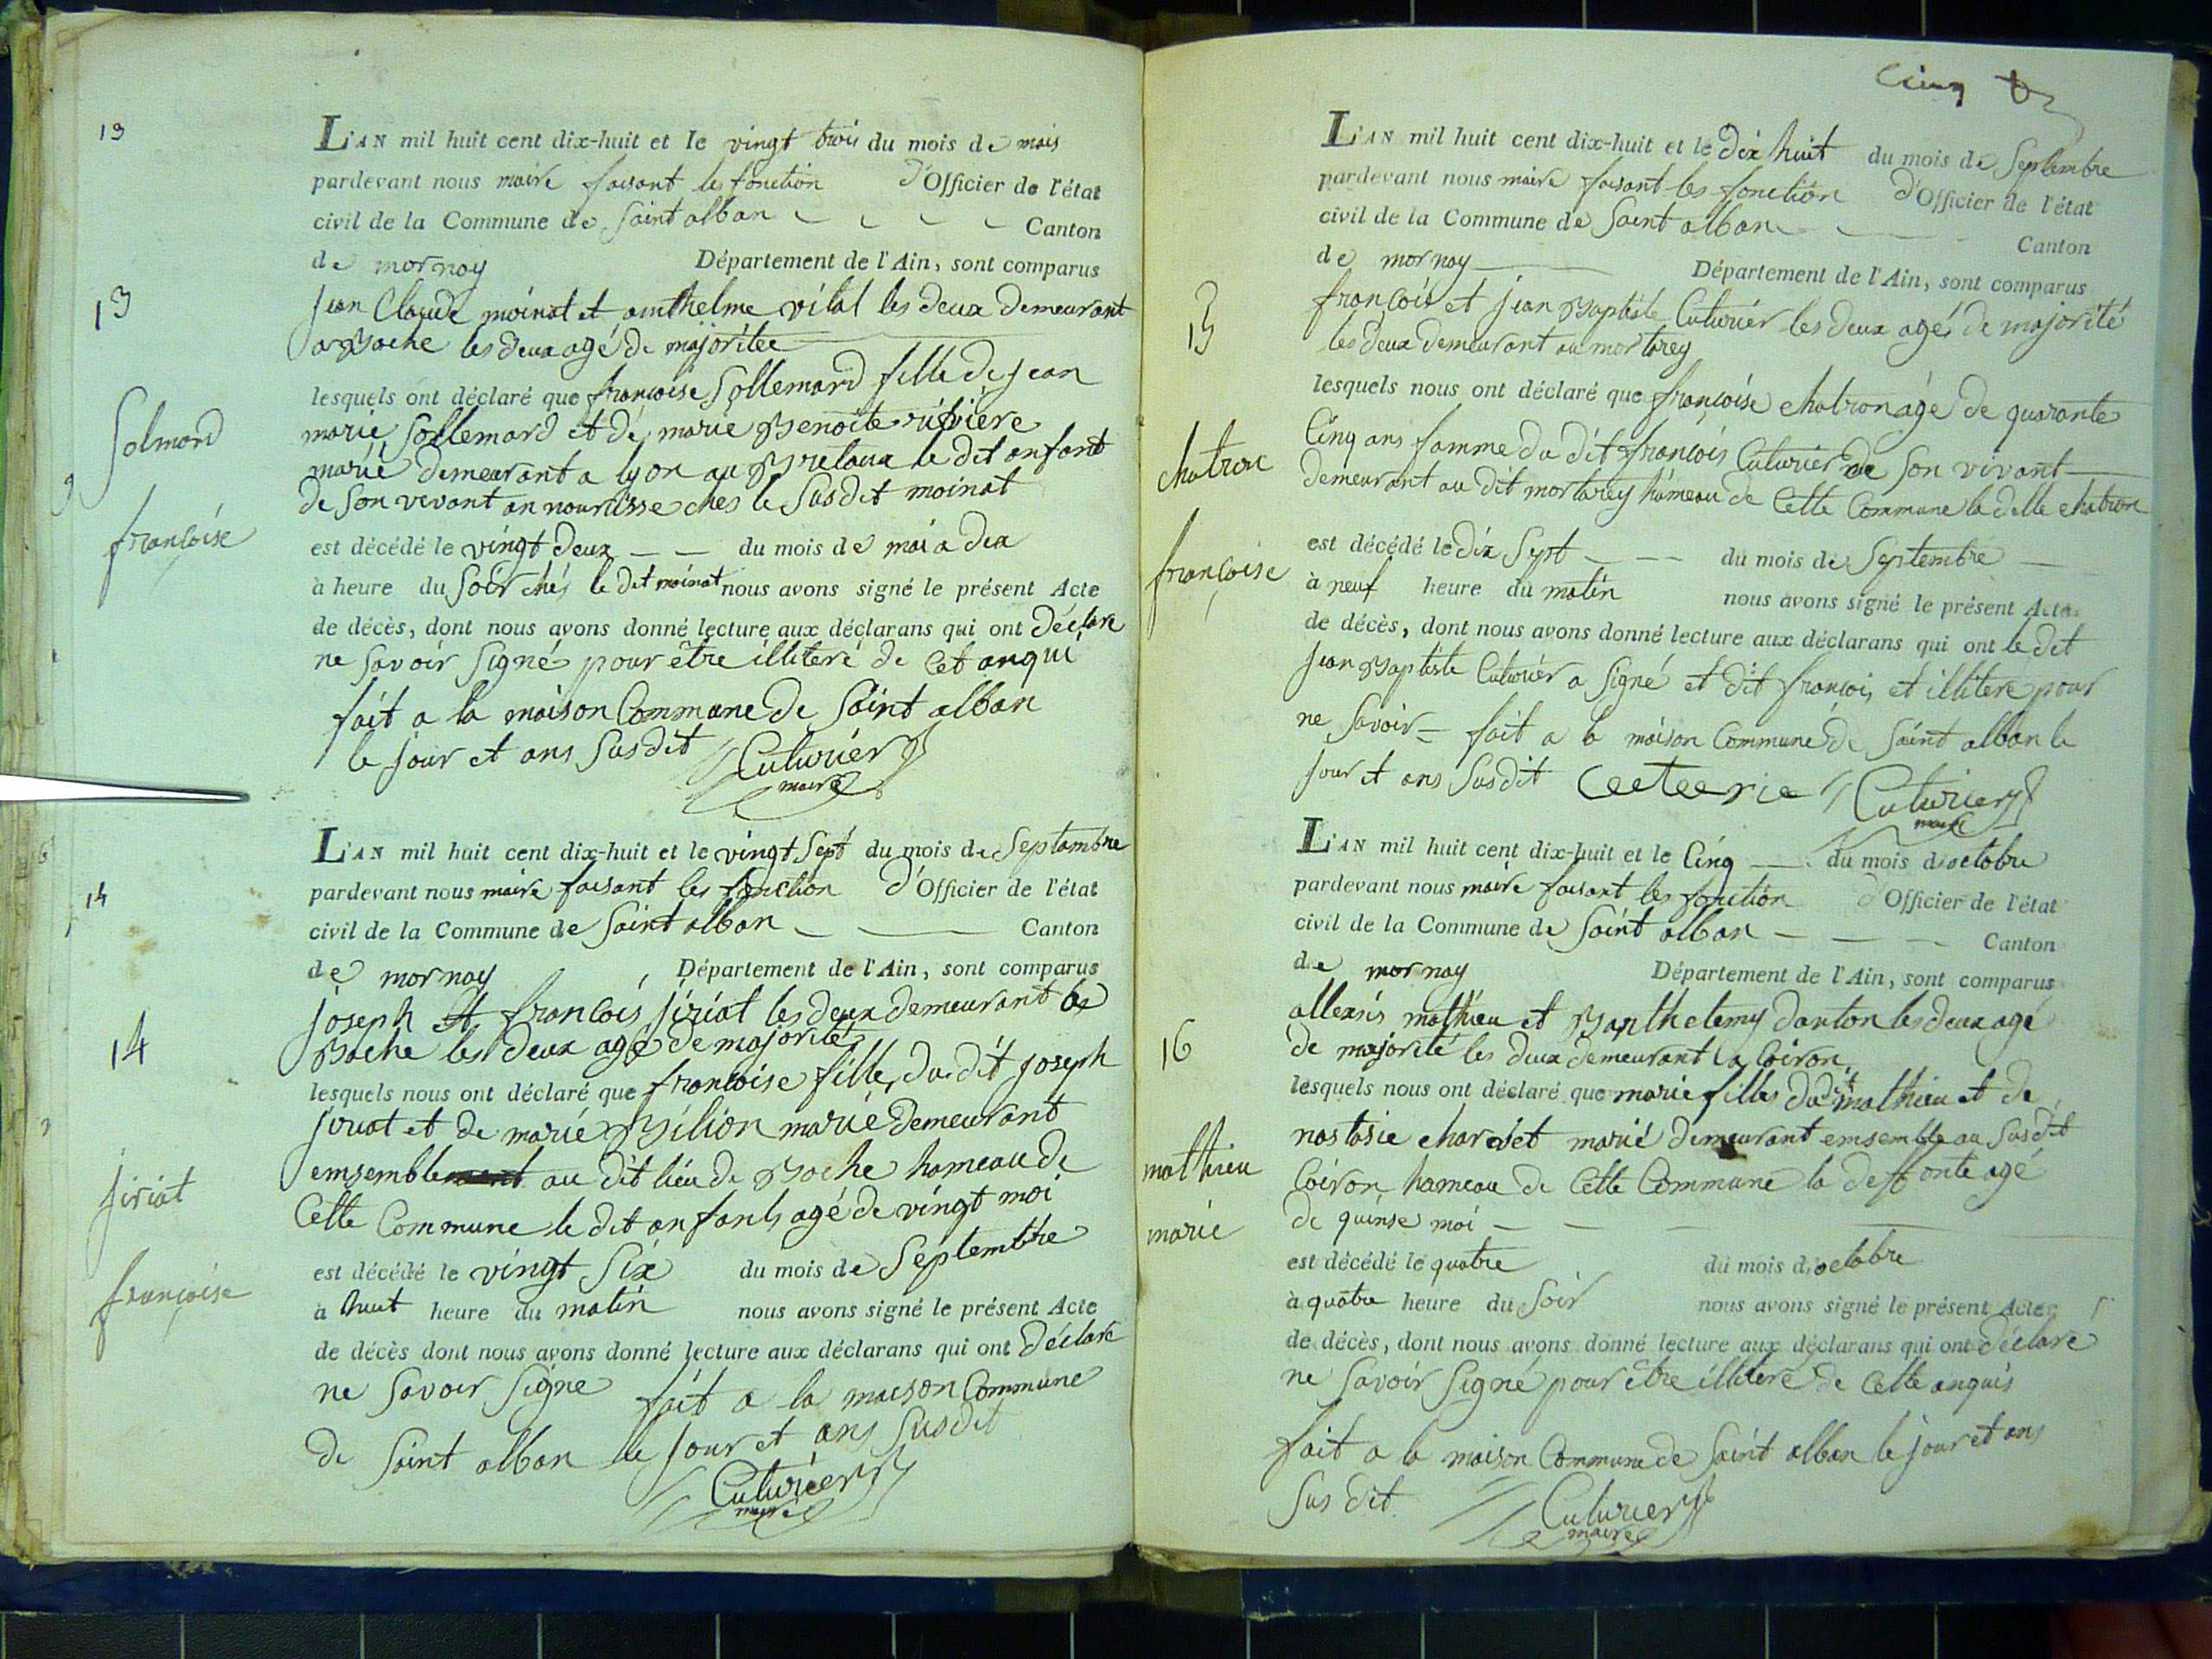 13
L'AN mil huit cent dix-huit et le vingt trois du mois de mais
pardevant nous maire faisant les fonction d'Officier de l'état
civil de la Commune de Saint alban Canton
de mornay Département de l'Ain, sont comparus
13
jean Claude moinat et anthelme vilal les deux demeurant
a Boche les deux agé de majoritée
lesquels ont déclaré que françoise Sollemard fille de jean
Solmard
françoise
marie Sollemard et de marie Benoite rivière
marié demeurant a lyon au Bretaux le dit anfant
de Son vevant an nourrisse ches le Susdit moinat
est décédé le vingt deux du mois de mai a dix
à heure du Soir chés le dit moinat nous avons signé le présent Acte
de décès, dont nous avons donné lecture aux déclarans qui ont Déclare
ne Savoir Signé pour être illiteré de Cet anqui
fait a la maison Commune de Saint alban
le jour et ans Susdit Cuturier
maire
14
L'AN mil huit cent dix-huit et le vingt Sept du mois de Septambre
pardevant nous maire faisant les fonction d'Officier de l'état
civil de la Commune de Saint alban Canton
de mornay Département de l'Ain, sont comparus
14
joseph et françois jiriat les deux demeurant
Boche les deux agé de majorité
lesquels nous ont déclaré que françoise fille du dit joseph
jiriat
françoise
jiriat et de marie Bilion marié demeurant
emsemble au dit lieu de Boche hameau de
Cette Commune le dit anfants agé de vingt moi
est décédé le vingt Six du mois de Septembre
à huit heure du matin nous avons signé le présent Acte
de décès dont nous avons donné lecture aux déclarans qui ont déclaré
ne Savoir Signe fait a la maison Commune
de Saint alban le jour et ans Susdit
Cuturier
maire
Cinq
L'AN mil huit cent dix-huit et le Dix huit du mois de Septembre
pardevant nous maire faisant les fonction d'Officier de l'état
civil de la Commune de Saint alban Canton
de mornay Département de l'Ain, sont comparus
françois et jean Baptiste Cuturier les deux agés de majorité
les deux demeurant au mortarey
lesquels nous ont déclaré que françoise chatron agé de quarante
chatron
françoise
Cinq ans famme du dit françois Cuturier de Son vivant
demeurant au dit mortarey hameau de Cette Commune la ditte chatron
est décédé le dix Sept du mois de Septembre
à neuf heure du matin nous avons signé le présent Acte
de décès, dont nous avons donné lecture aux déclarans qui ont le dit
jean Baptiste Cuturier a Signé et dit françois et illitere pour
ne Savoir fait a la maison Commune de Saint alban le
jour et ans Susdit Cuturier
maire
L'AN mil huit cent dix-huit et le Cinq du mois d'octobre
pardevant nous maire faisant les fonction d'Officier de l'état
civil de la Commune de Saint alban Canton
de mornay Département de l'Ain, sont comparus
16
allexis mathieu et Barthelemy danton les deux agé
de majorité les deux demeurant a Coiron
lesquels nous ont déclaré que marie filles du dit mathieu et de
mathieu
marie
nastasie chardet marié demeurant emsemble au Susdit
Coiron hameau de Cette Commune la deffonte agé
de quinse moi
est décédé le quatre du mois d'octobre
à quatre heure du Soir nous avons signé le présent Acte
de décès, dont nous avons donné lecture aux déclarans qui ont déclaré
ne Savoir Signé pour être illiteré de Cette anquis
fait a la maison Commune de Saint alban le jour et ans
Sus dit Cuturier
maire